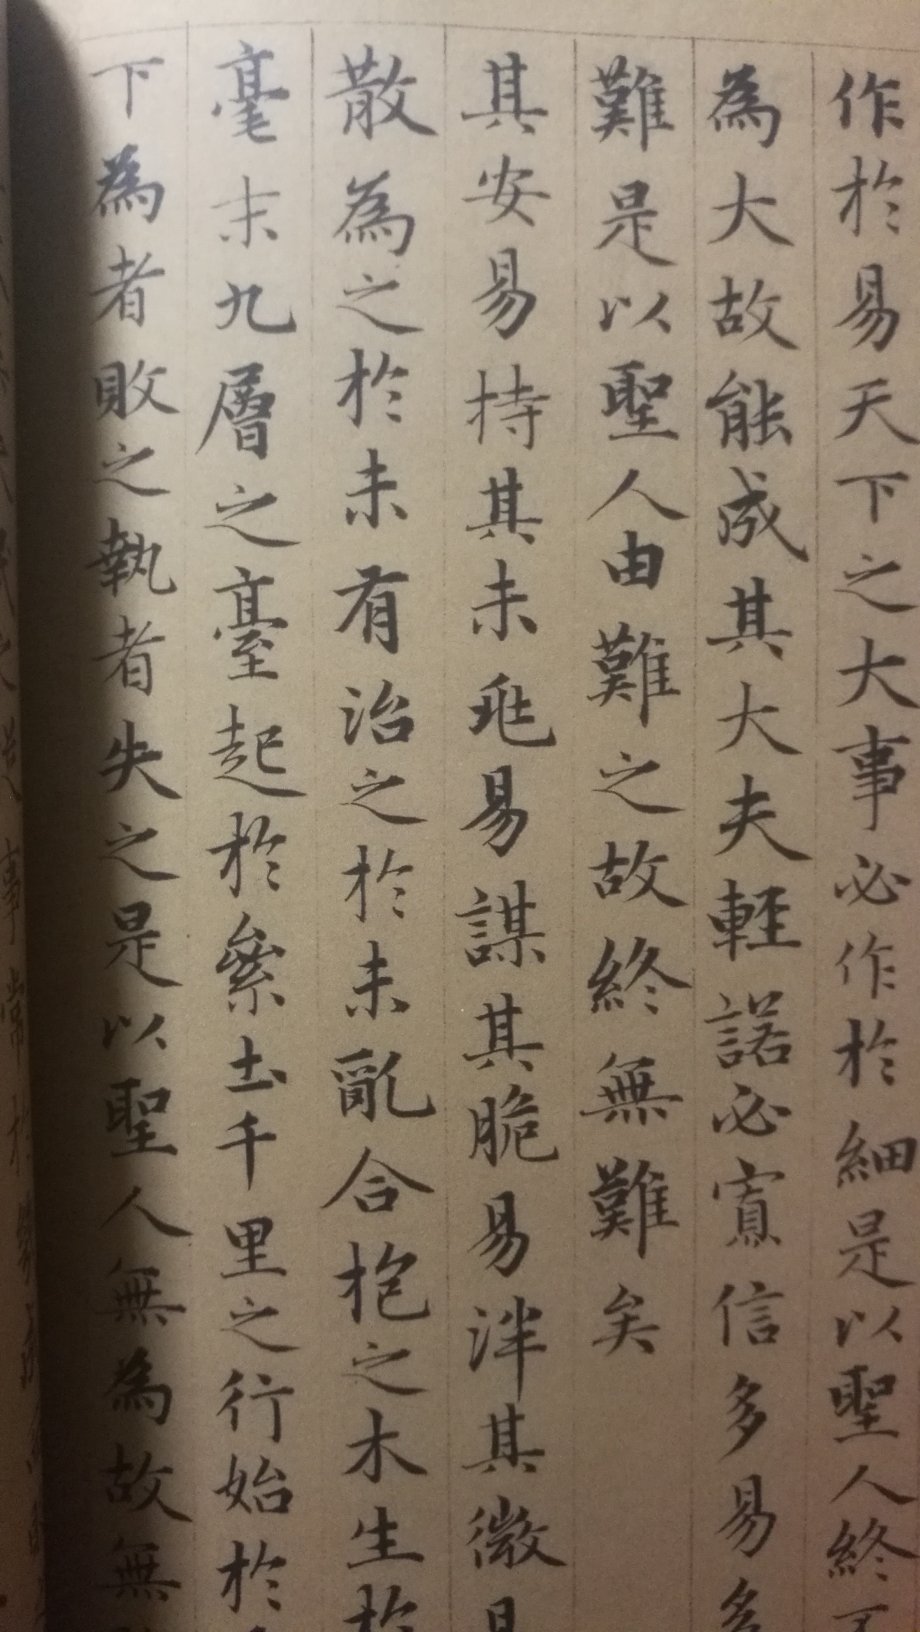 作於易天下之大事必作於細是以聖人終
為大故能成其大夫輕諾必寡信多易多
難是以聖人由難之故終無難矣
其安易持其未兆易謀其脆易泮其微易
散為之於未有治之於未亂合抱之木生於
毫末九層之臺起於絫土千里之行始於
下為者敗之執者失之是以聖人無為故無